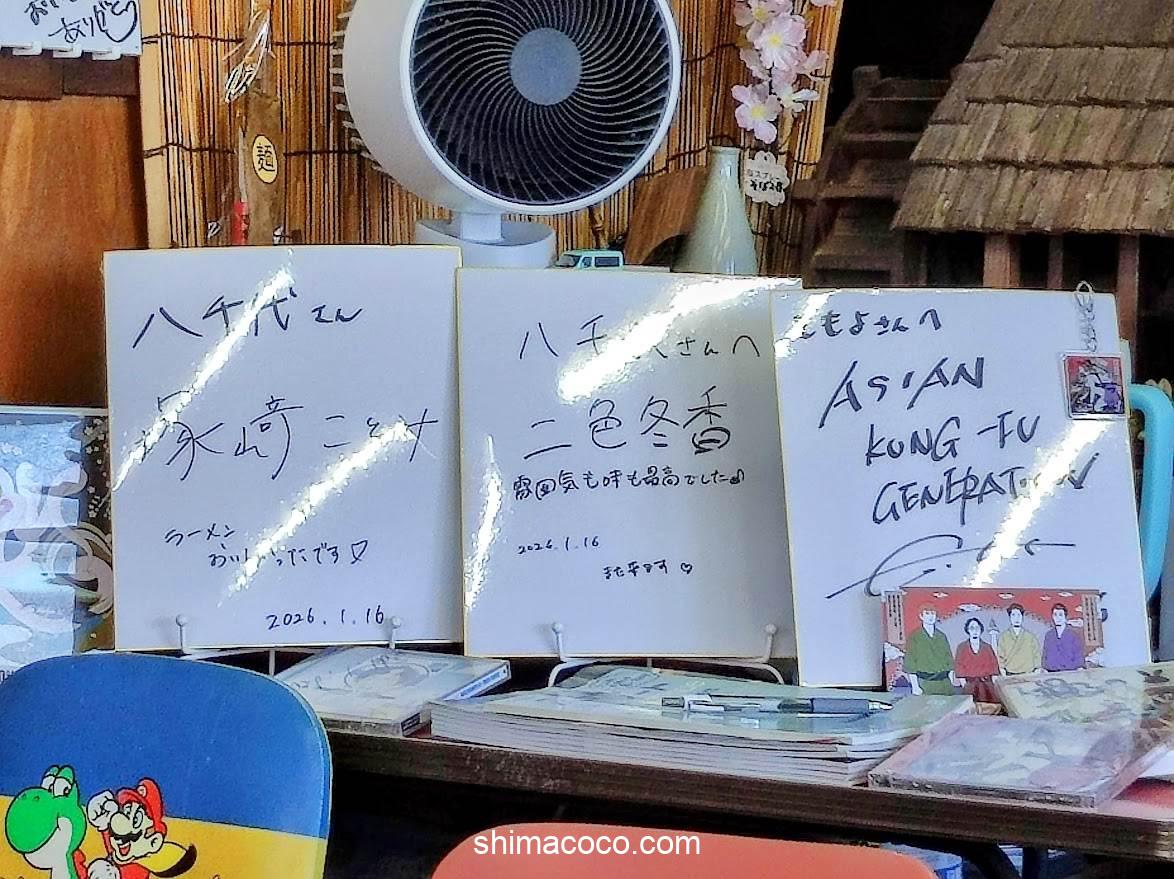 麺
八千代さん
塚崎ことナ
ラーメン
おいしかったです♡
2026.1.16
八千 さんへ
二色冬香
雰囲気も味も最高でした
2026.1.16
また来ます♡
さんへ
ASIAN
KUNG-FU
GENERATION
shimacoco.com